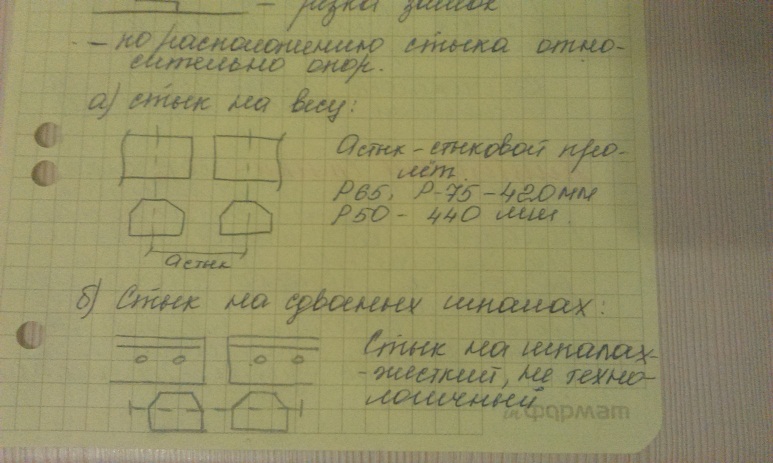 — резка замок
— по расположению стыка отно-
сительно опор.
а) стык на весу:
aстык – стыковой про-
лёт.
Р65, Р-75 – 420мм
Р50 – 440 мм.
aстык
б) Стык на сдвоенных шпалах:
Стык на шпалах-
-жесткий, не техно-
логичный
inформат